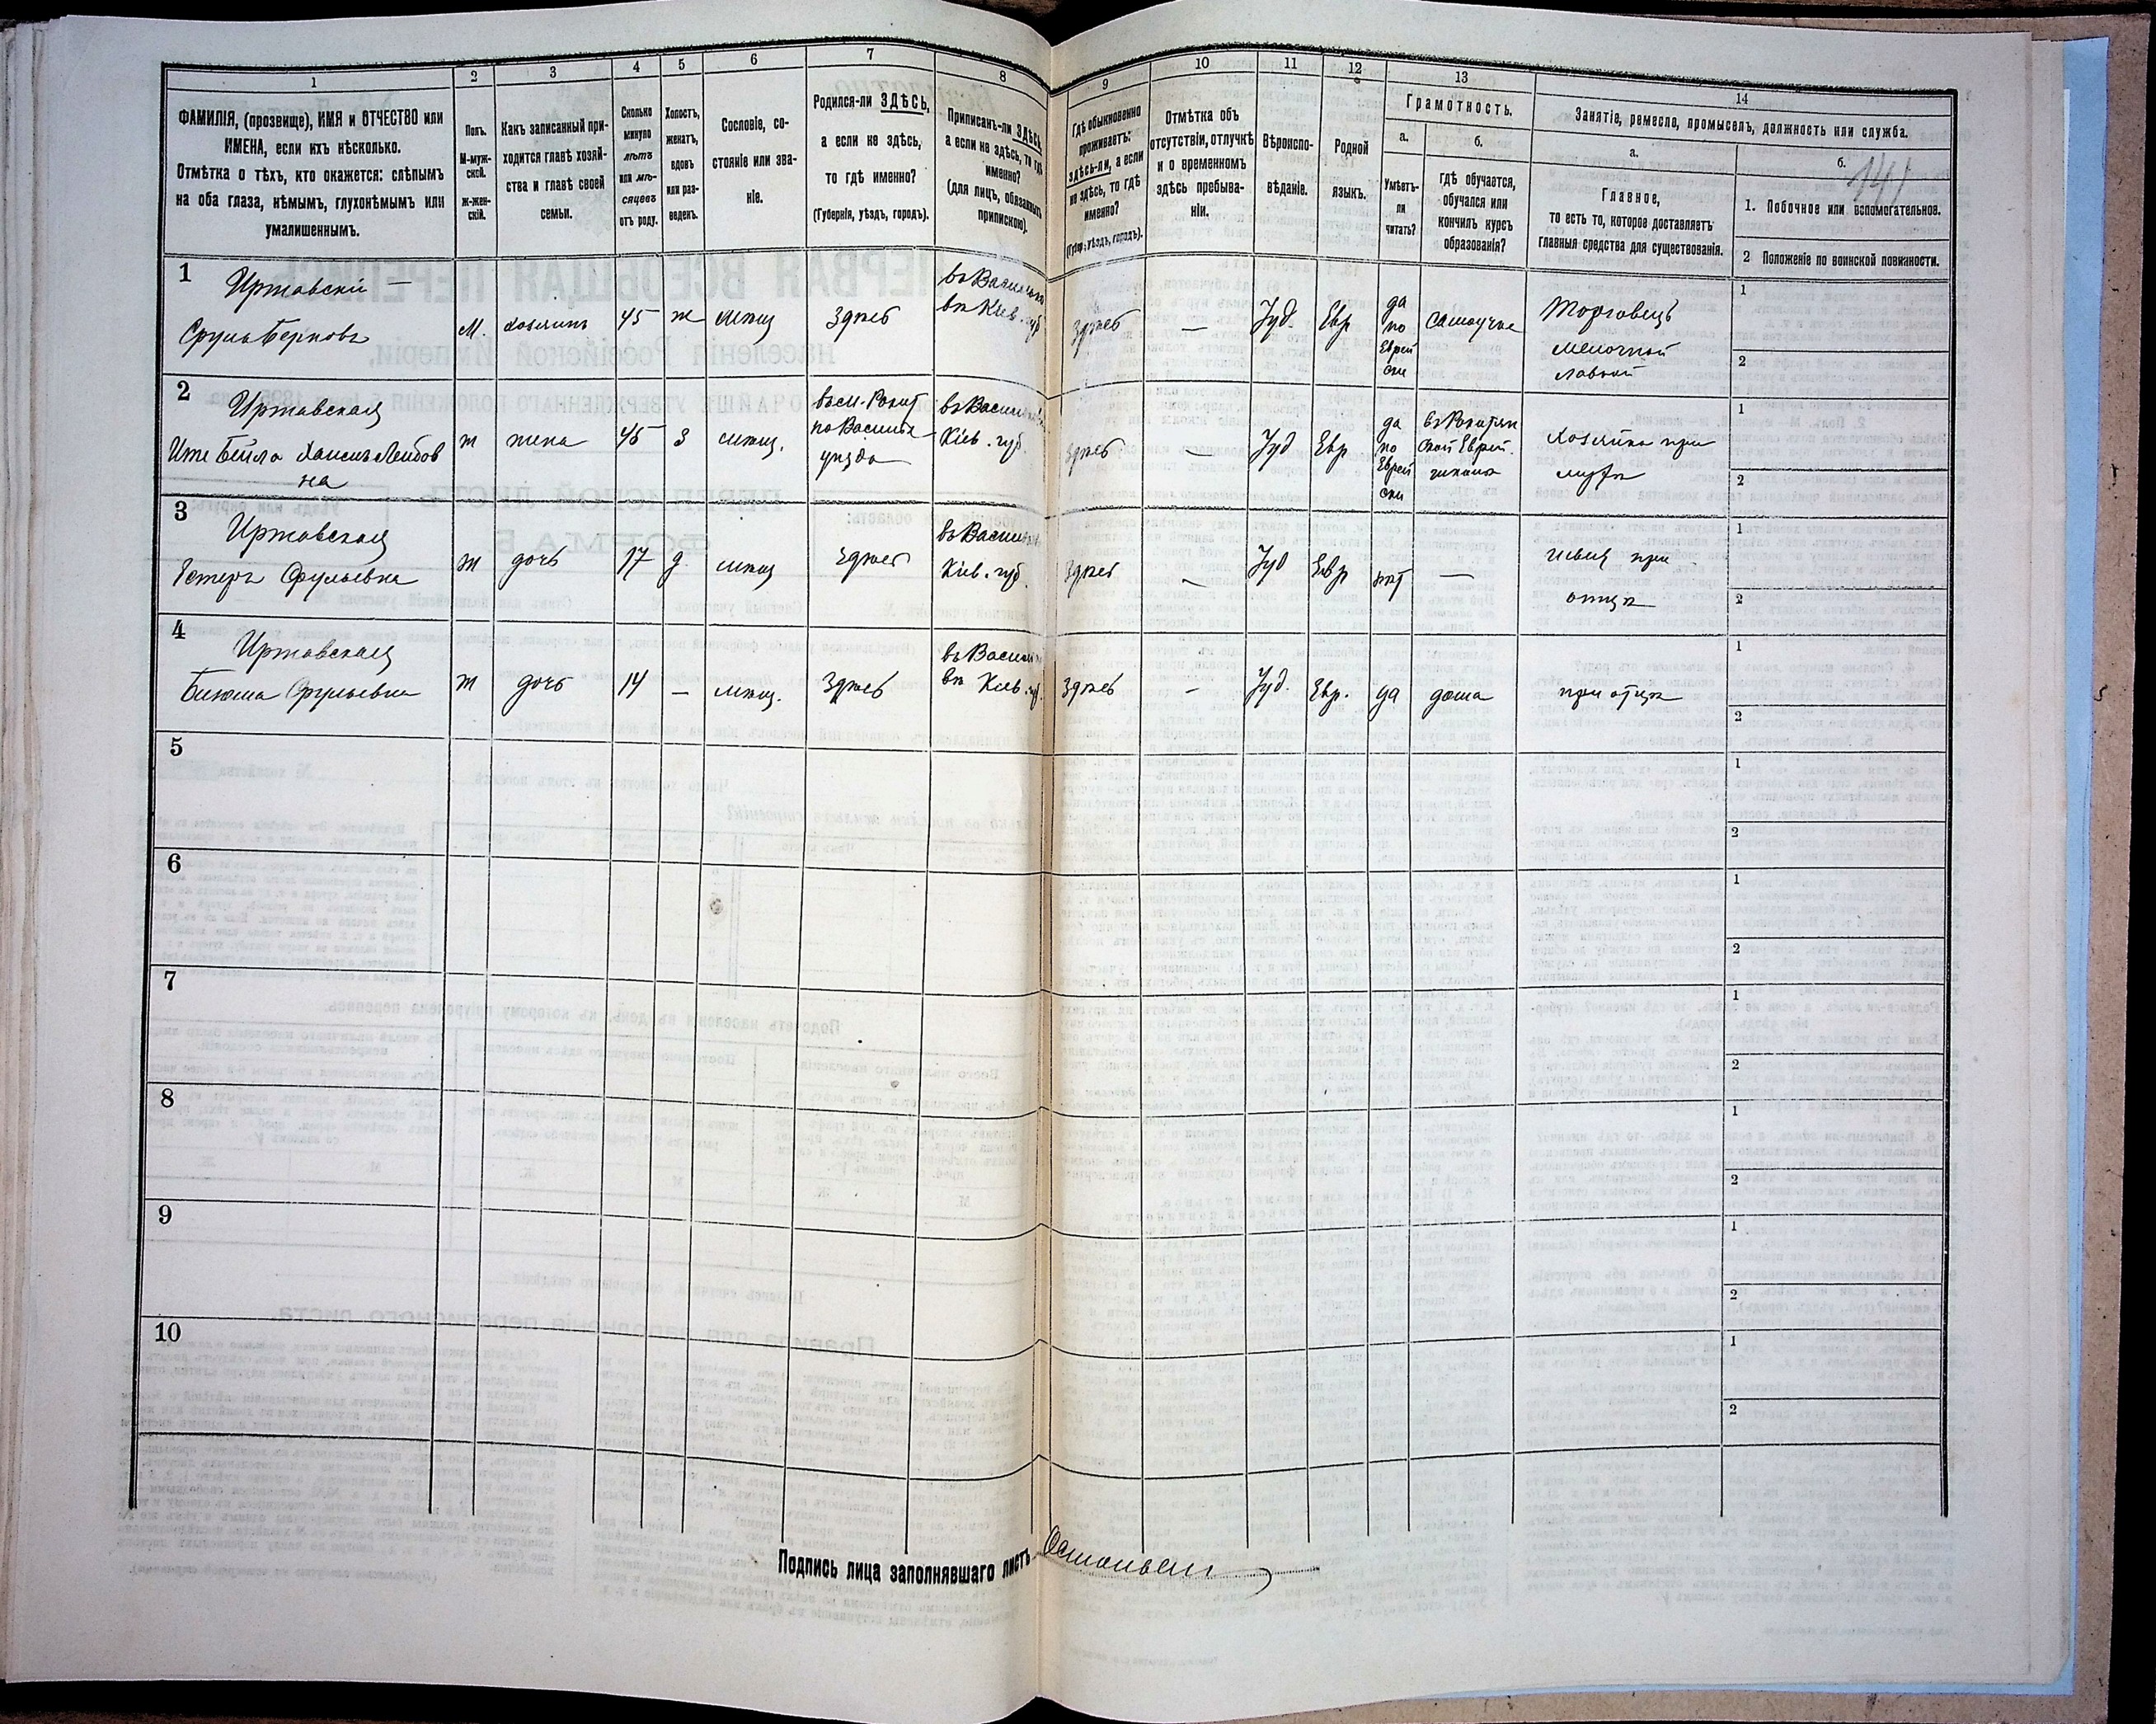 1 2 3 4 5 6 7 8 9 10 11 12 13 14
ФАМИЛІЯ, (прозвище), ИМЯ и ОТЧЕСТВО или
ИМЕНА, если ихъ нѣсколько.
Отмѣтка о тѣхъ, кто окажется: слѣпымъ
на оба глаза, нѣмымъ, глухонѣмымъ или
умалишеннымъ.
Полъ.
М-муж-
ской.
ж-жен-
скій.
Какъ записанный при-
ходится главѣ хозяй-
ства и главѣ своей
семьи.
Сколько
минуло
лѣтъ
или мѣ-
сяцевъ
отъ роду.
Холостъ,
женатъ,
вдовъ
или раз-
веденъ.
Сословіе, со-
стояніе или зва-
ніе.
Родился-ли ЗДѢСЬ,
а если не здѣсь,
то гдѣ именно?
(Губернія, уѣздъ, городъ).
Приписанъ-ли ЗДѢСЬ,
а если не здѣсь, то гдѣ
именно?
(для лицъ, обязанныхъ
припискою).
Гдѣ обыкновенно
проживаетъ:
здѣсь-ли, а если
не здѣсь, то гдѣ
именно?
(Губер., уѣздъ, городъ).
Отмѣтка объ
отсутствіи, отлучкѣ
и о временномъ
здѣсь пребыва-
ніи.
Вѣроиспо-
вѣданіе.
Родной
языкъ.
Грамотность.
а.
Умѣетъ-
ли
читать?
б.
гдѣ обучается,
обучался или
кончилъ курсъ
образованія?
Занятіе, ремесло, промыселъ, должность или служба.
а.
Главное,
то есть то, которое доставляетъ
главныя средства для существованія.
б.
141
1. Побочное или вспомогательное.
2 Положеніе по воинской повинности.
1
Иржавскій —
Сруль Берковъ
М.
хозяинъ
45
ж
мѣщ
Здѣсь
въ
Кіев. губ
Здѣсь
—
Іуд.
Евр
да
по
Еврей
ски
самоучк
Торговецъ
мелочной
лавкой
1
2
2
Иржавская
Бейла Лейбов
на
ж
жена
45
З
мѣщ.
уѣзда
Кіев. губ.
Здѣсь
—
Іуд
Евр
да
по
Еврей
ски
ской Еврей.
хозяйка при
мужѣ
1
2
3
Иржавская
Естеръ Срульевна
ж
дочь
17
д.
мѣщ
Здѣсь
Кіев. губ.
Здѣсь
—
Іуд
Евр
нѣт
—
при
отцѣ
1
2
4
Иржавская
Срульевна
ж
дочь
14
—
мѣщ.
Здѣсь
Кіев. губ.
Здѣсь
—
Іуд.
Евр.
да
дома
при отцѣ
1
2
5
1
2
6
1
2
7
1
2
8
1
2
9
1
2
10
1
2
Подпись лица заполнявшаго листъ